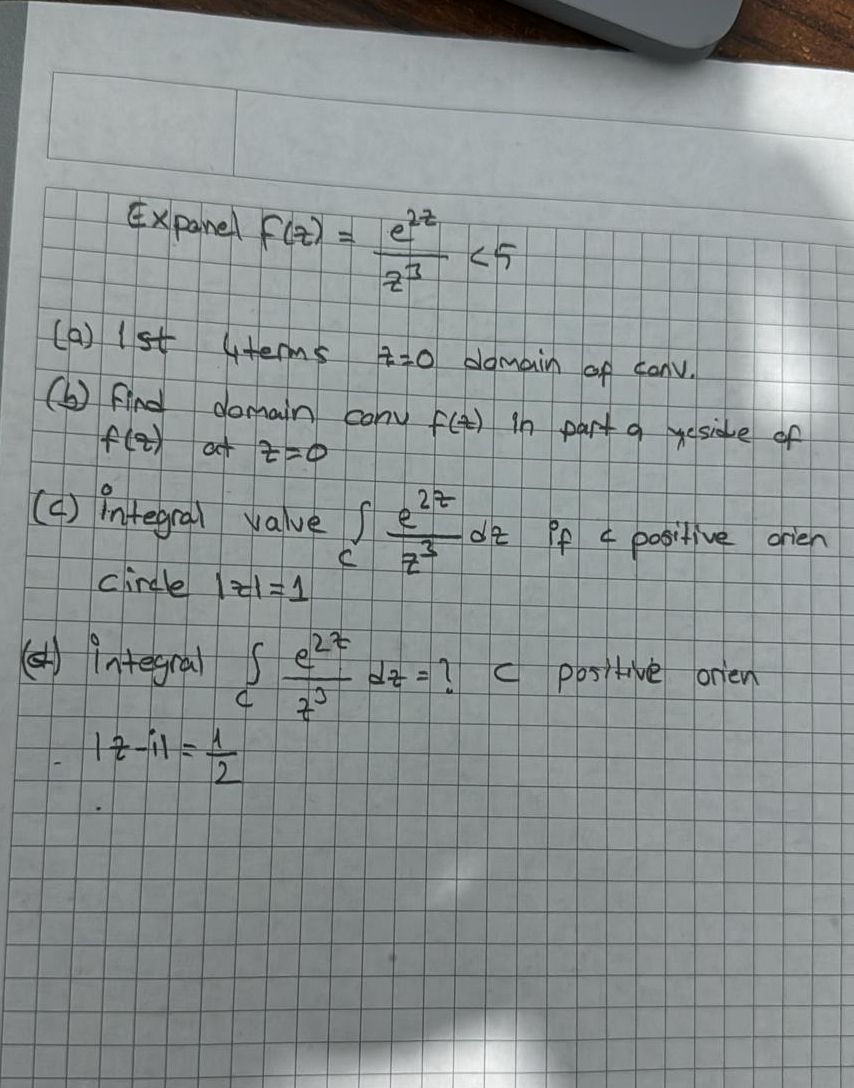 Expanel f(z) = e^{2z}/z^3 < 5
(a) 1st 4terms z=0 domain of conv.
(b) find domain conv f(z) in part a yeside of
f(z) at z=0
(c) integral value ∫_C e^{2z}/z^3 dz if c positive orien
circle |z|=1
(d) integral ∫_C e^{2z}/z^3 dz = ? C positive orien
|z-i| = 1/2